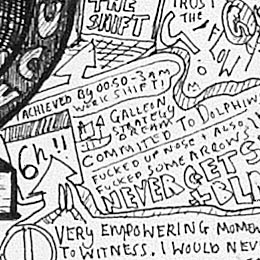 THE
SHIFT
TRUST
THE
FLOW
ACHIEVED BY 0050-3AM
WORK SHIFT!
GALLEON
STRATEGY
6h!!
COMMITED TO DOLPHIN
FUCKED UP NOSE + ALSO
FUCKED SOME ARROWS
NEVER GETS
VERY EMPOWERING MOME
TO WITNESS. I WOULD NEV